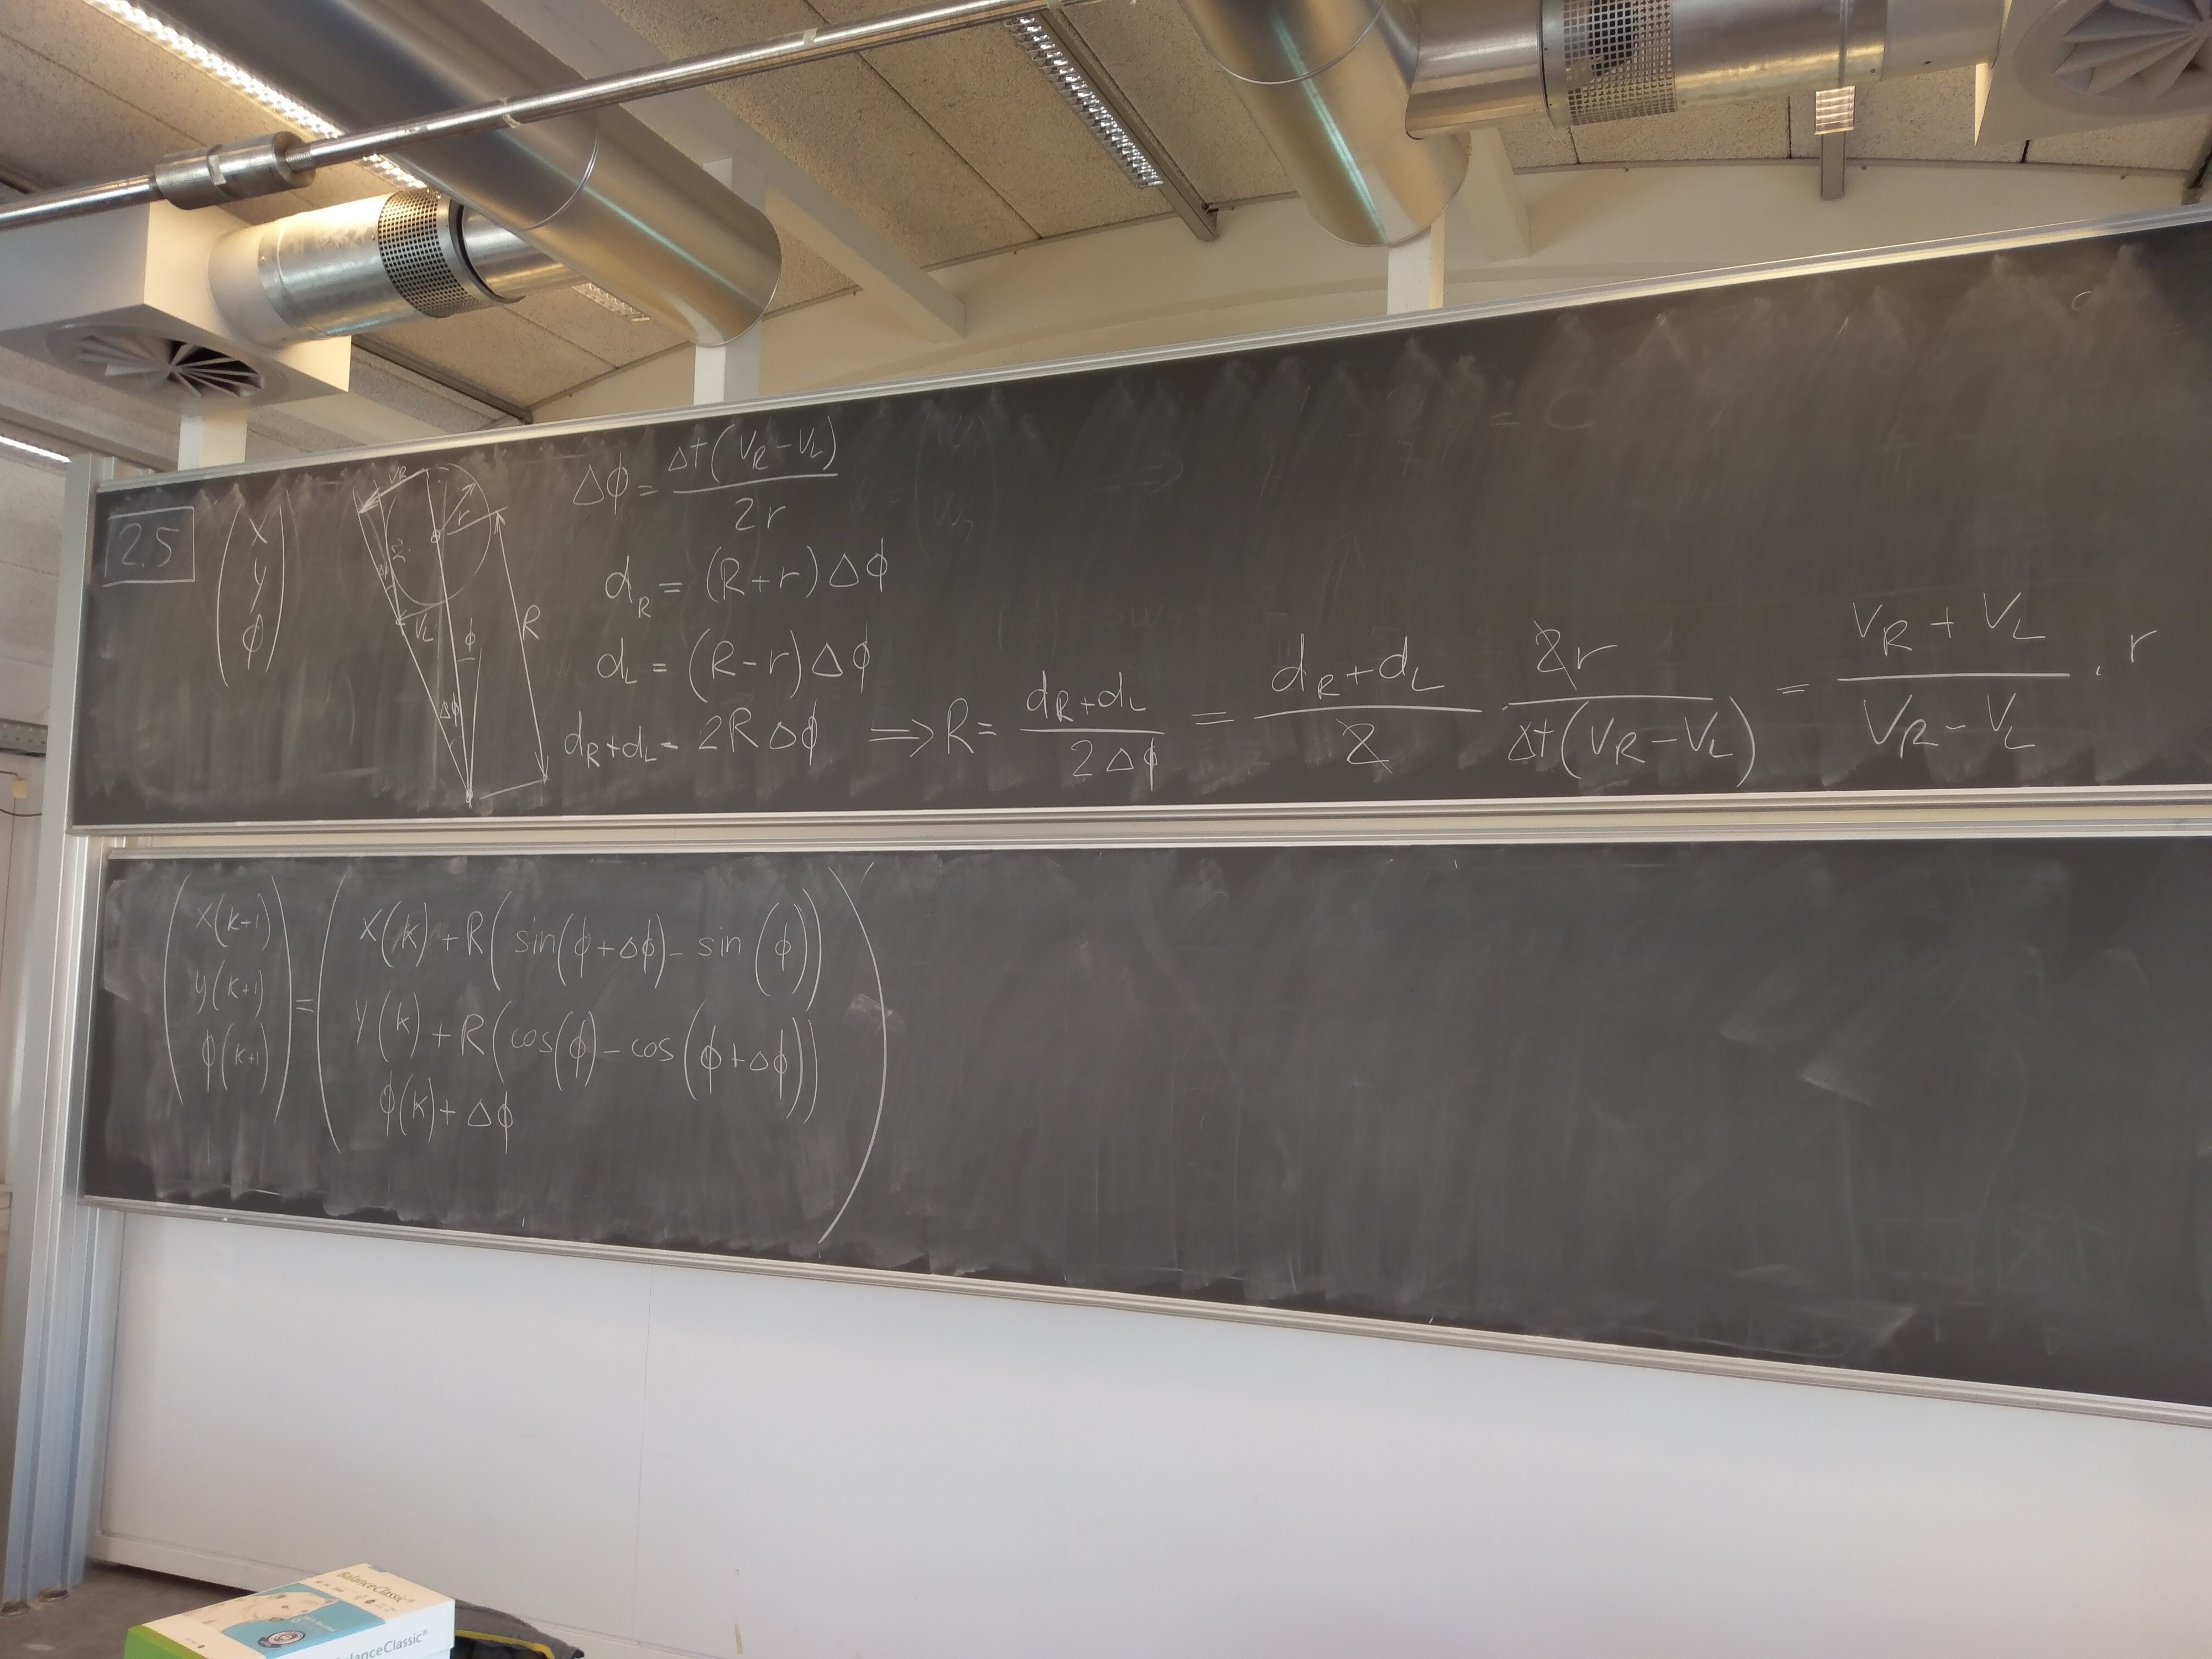 2.5
( x
y
ϕ )
V_R
r
V_L
ϕ
R
Δϕ
Δϕ = Δt(V_R - V_L) / 2r
d_R = (R+r)Δϕ
d_L = (R-r)Δϕ
d_R+d_L = 2RΔϕ ⟹ R = (d_R+d_L) / (2Δϕ) = (d_R+d_L) / 2 2r / (Δt(V_R-V_L)) = (V_R + V_L) / (V_R - V_L) · r
x(k+1) = x(k) + R(sin(ϕ+Δϕ) - sin(ϕ))
y(k+1) y(k) + R(cos(ϕ) - cos(ϕ+Δϕ))
ϕ(k+1) ϕ(k) + Δϕ
BalanceClassic®
BalanceClassic®